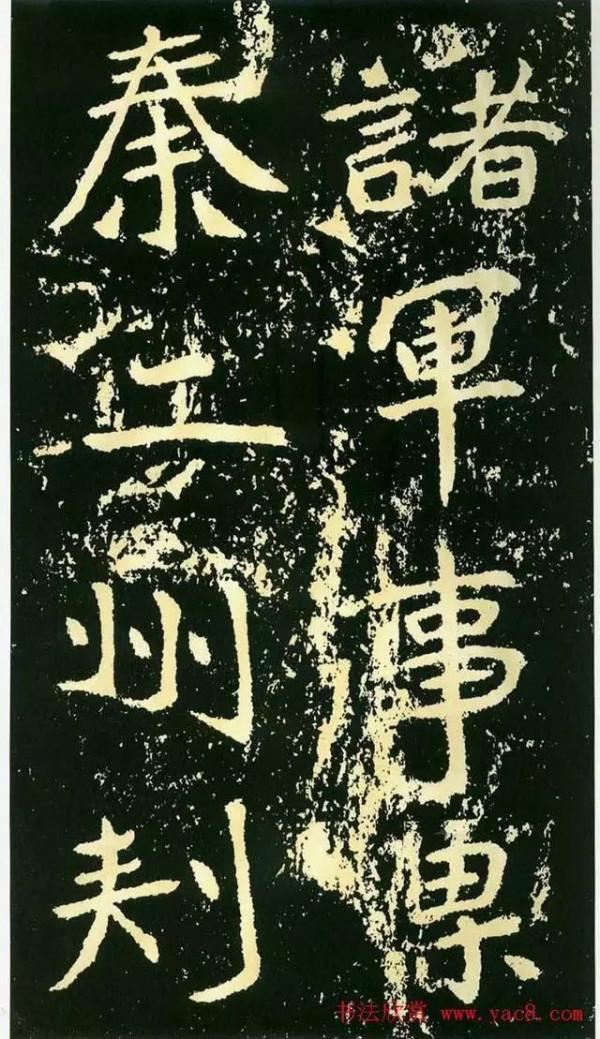 諸軍事梁
秦二州刺
书法欣赏 www.yac8.com